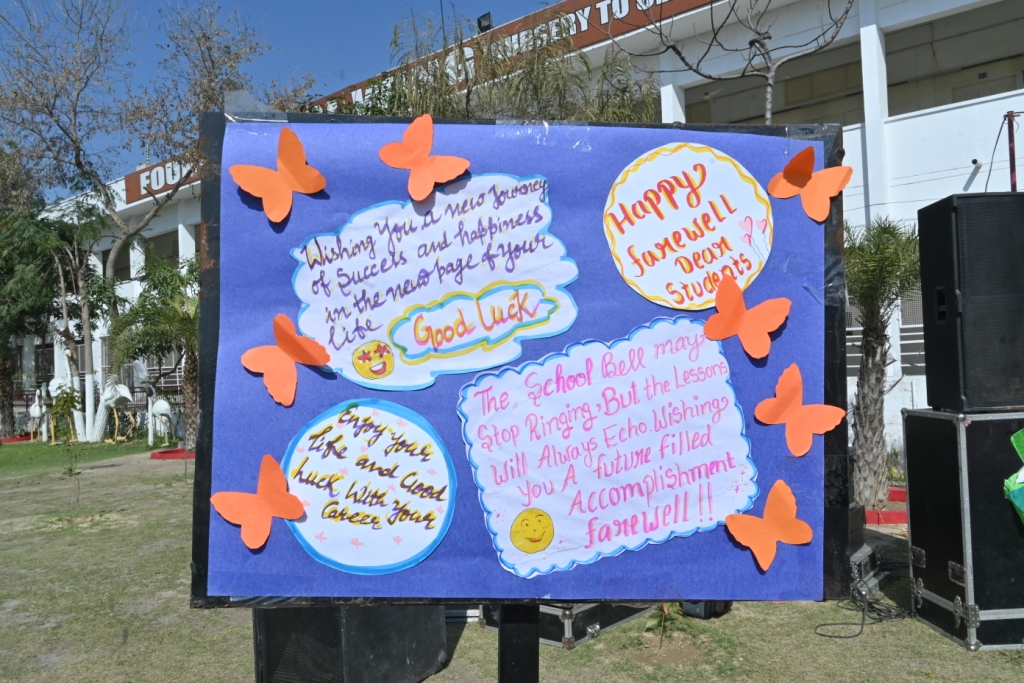 NURSERY TO
FOU
Wishing You a new Journey
of Success and happiness
in the new page of Your
life
Good Luck
Happy
farewell
Dear
Students
Enjoy your
life and Good
Luck With Your
Career Your
The School Bell may
Stop Ringing, But the Lessons
Will Always Echo. Wishing
You A future filled
Accomplishment
farewell!!